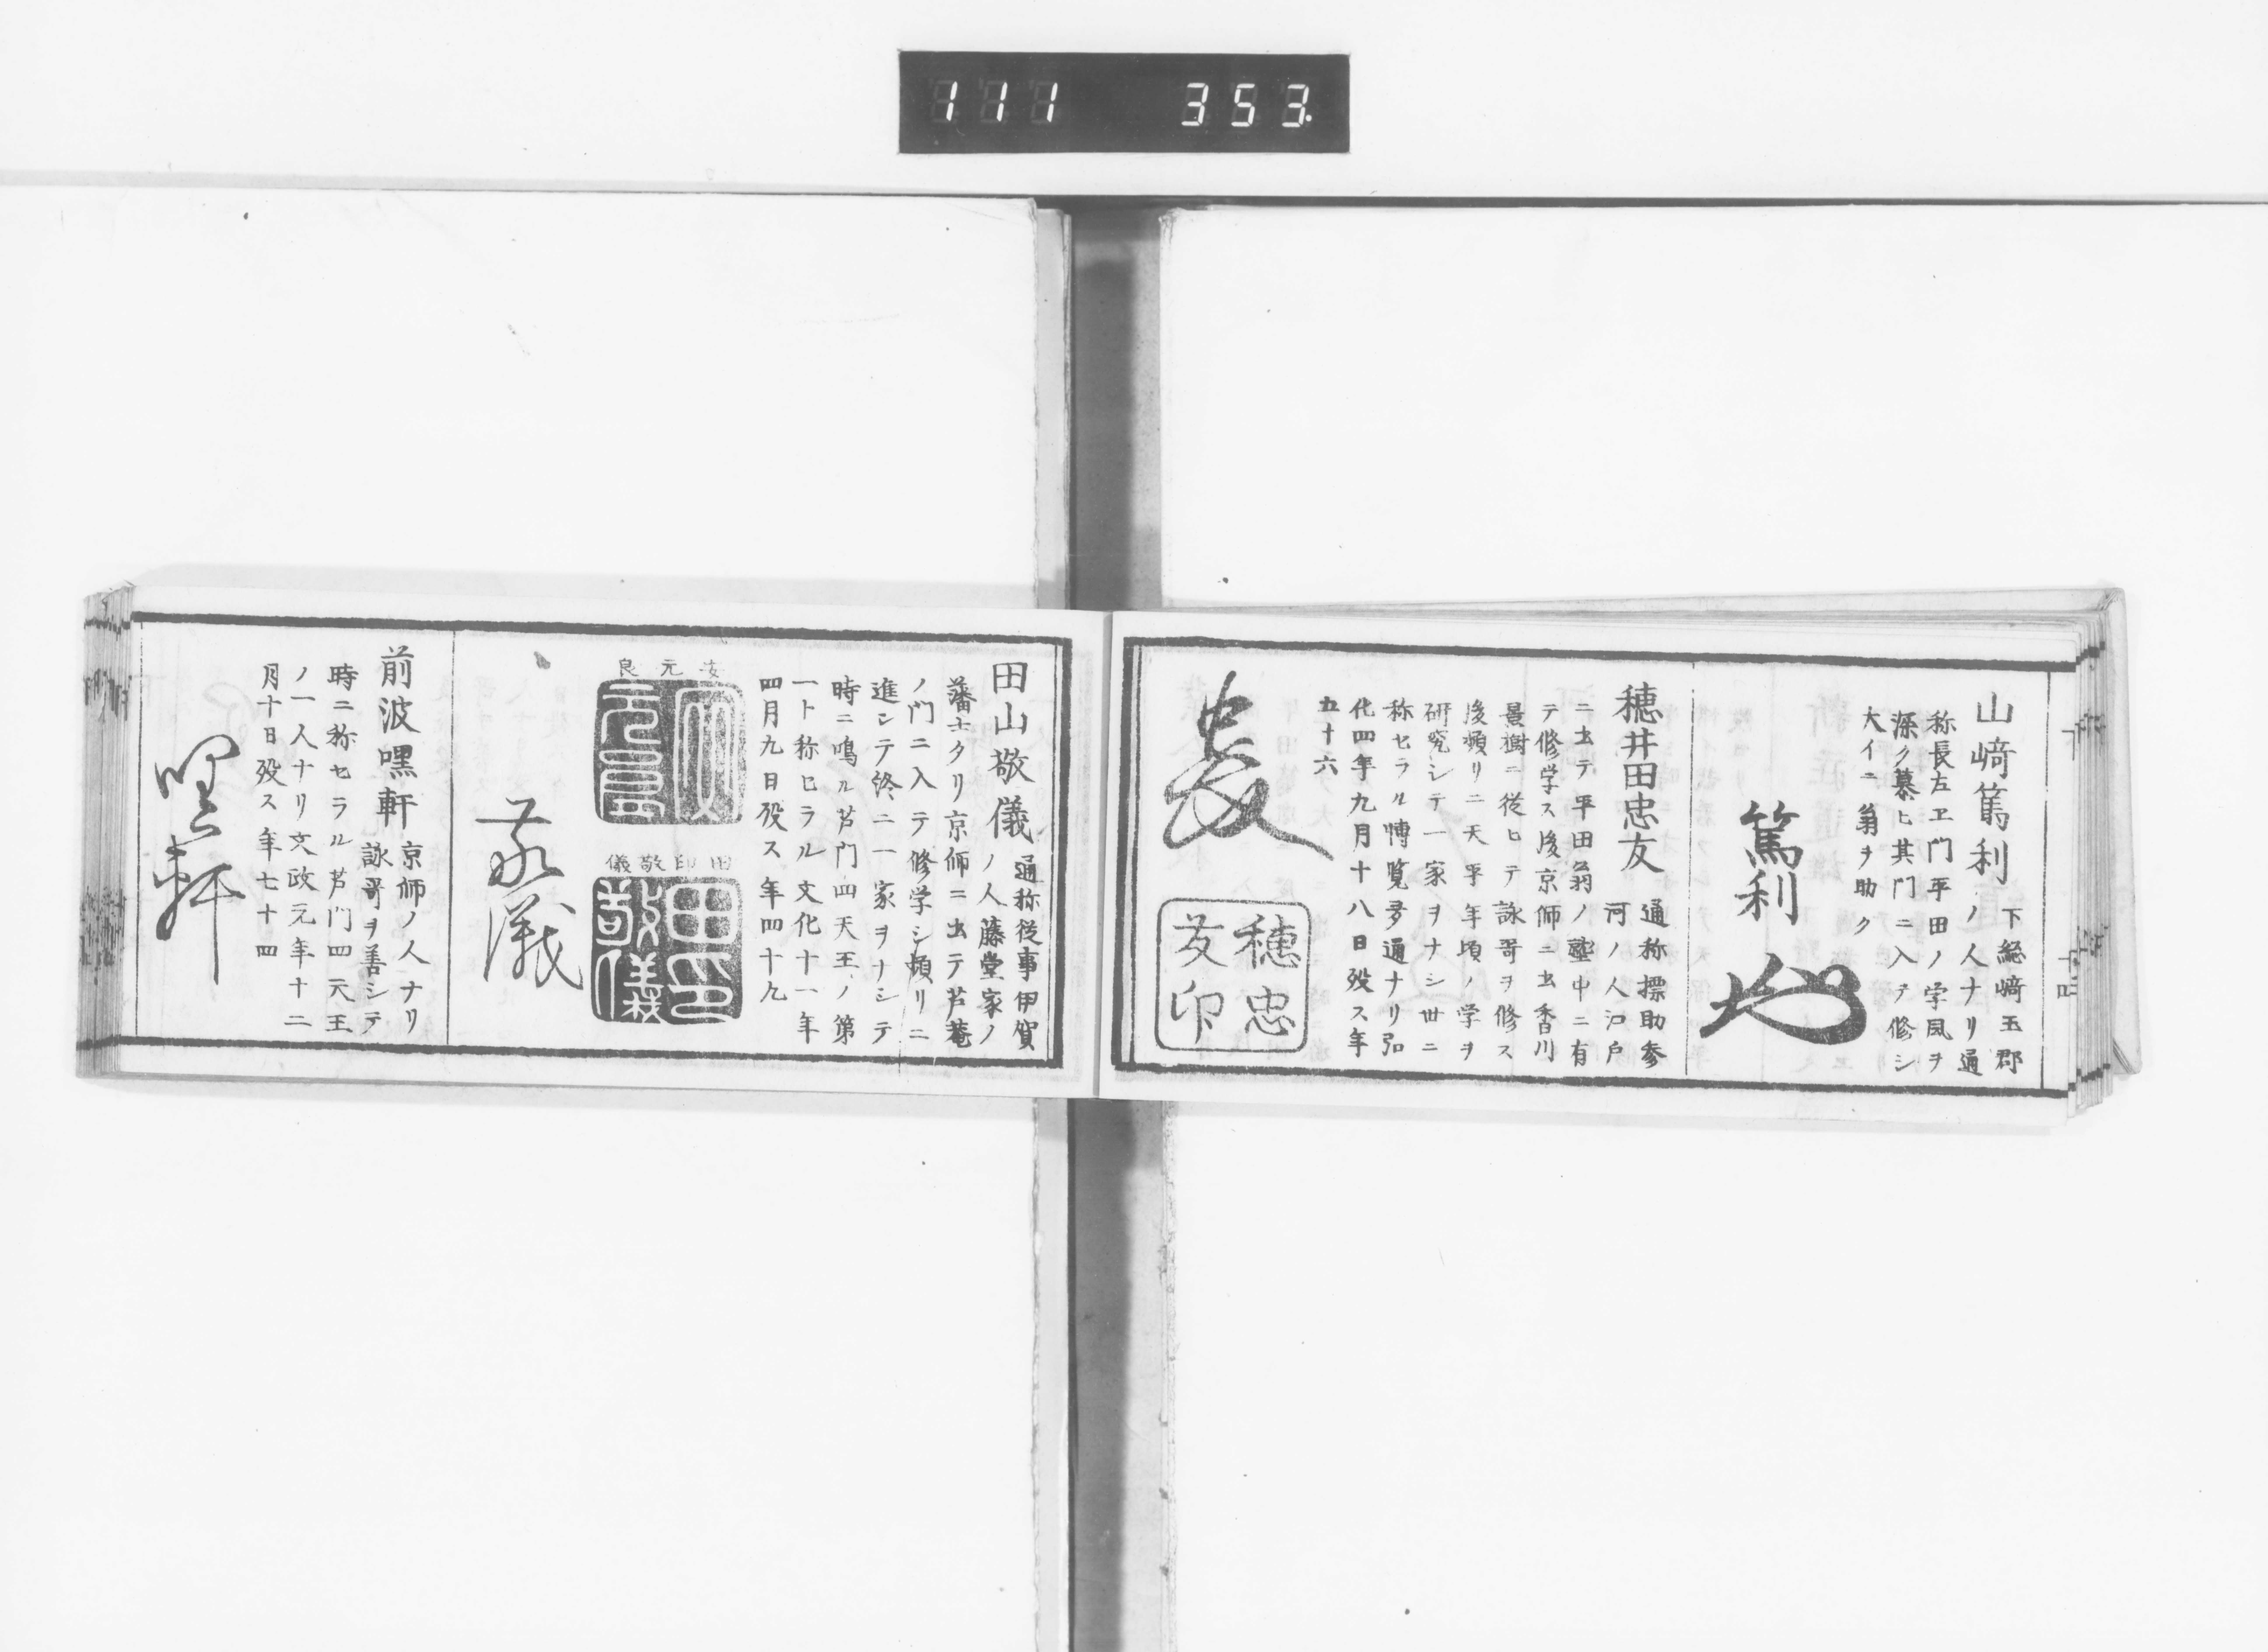 111 353.
山﨑篤利 下総﨑玉郡
ノ人ナリ通
称長左ヱ門平田ノ学風ヲ
深ク慕ヒ其門ニ入テ修シ
大イニ翁ヲ助ク
篤利
穂井田忠友 通称摽助参
河ノ人江戸
ニ出テ平田翁ノ塾中ニ有
テ修学ス後京師ニ出香川
景樹ニ従ヒテ詠哥ヲ修ス
後頻リニ天平年頃ノ学ヲ
研究シテ一家ヲナシ世ニ
称セラル博覧多通ナリ弘
化四年九月十八日殁ス年
五十六
忠友
穂忠
友印
十四
田山敬儀 通称従事伊賀
ノ人藤堂家ノ
藩士タリ京師ニ出テ芦菴
ノ門ニ入テ修学シ頻リニ
進ンテ終ニ一家ヲナシテ
時ニ鳴ル芦门四天王ノ第
一ト称セラル文化十一年
四月九日殁ス年四十九
元良
田印敬儀
敬儀
前波嘿軒 京師ノ人ナリ
詠哥ヲ善シテ
時ニ称セラル芦门四天王
ノ一人ナリ文政元年十二
月十日殁ス年七十四
嘿軒